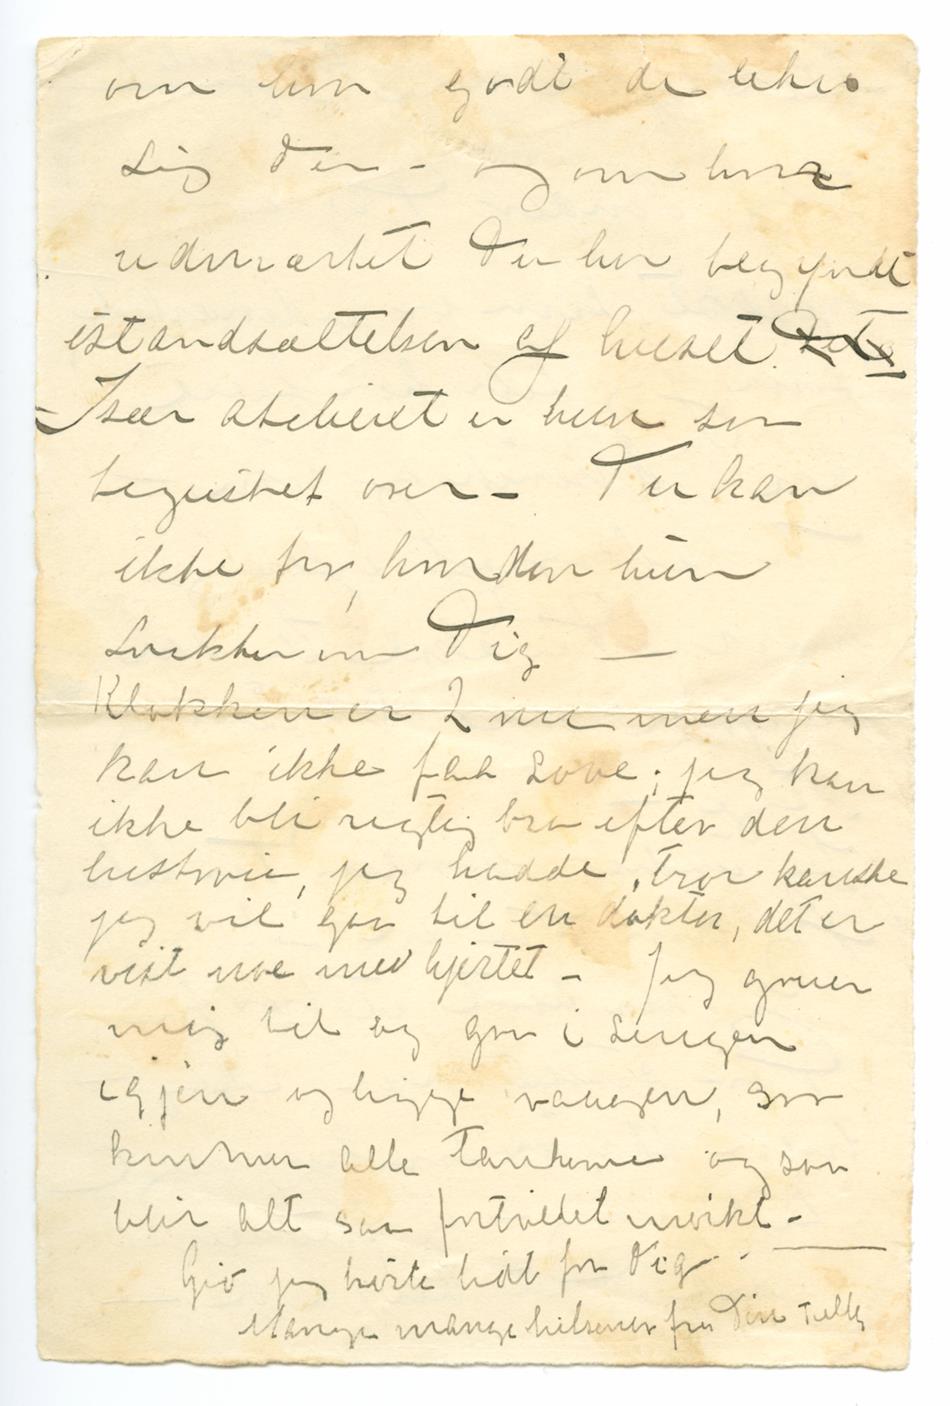 om hvor godt de likte
sig der – og om hvor
udmærket Du har begyndt
istandsættelsen af huset.
Især atelieret er hun saa
begeistret over – Du kan
ikke tro, hvordan hun
snakker om Dig —
Klokken er 2 nu men jeg
kan ikke faa sove; jeg kan
ikke bli rigtig bra efter den
historie, jeg hadde, tror kanske
jeg vil gaa til en doktor, det er
vist noe med hjertet – Jeg gruer
mig til og gaa i sengen
igjen og ligge vaagen, saa
kommer alle tankerne og saa
blir alt saa fortvilet mørkt –
Gid jeg hørte lidt fra Dig –
Mange mange hilsener fra Din Tulla